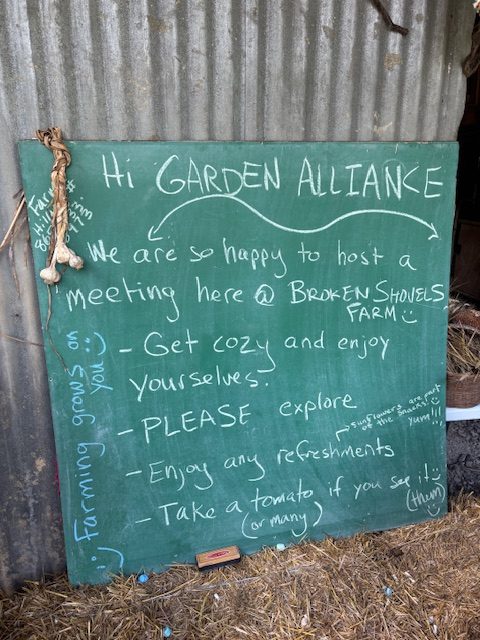 Hi GARDEN ALLIANCE
We are so happy to host a
meeting here @ BROKEN SHOVELS
FARM :)
- Get cozy and enjoy
yourselves!
- PLEASE explore
- Enjoy any refreshments
sunflowers are part
of the snacks! :)
yum!!!
- Take a tomato if you see it! :)
(or many)
(them) :)
:) Farming grows on
you :)
Farm #